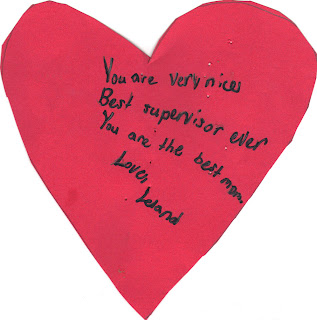 You are very nices
Best supervisor ever
You are the best mom.
Love,
Leland